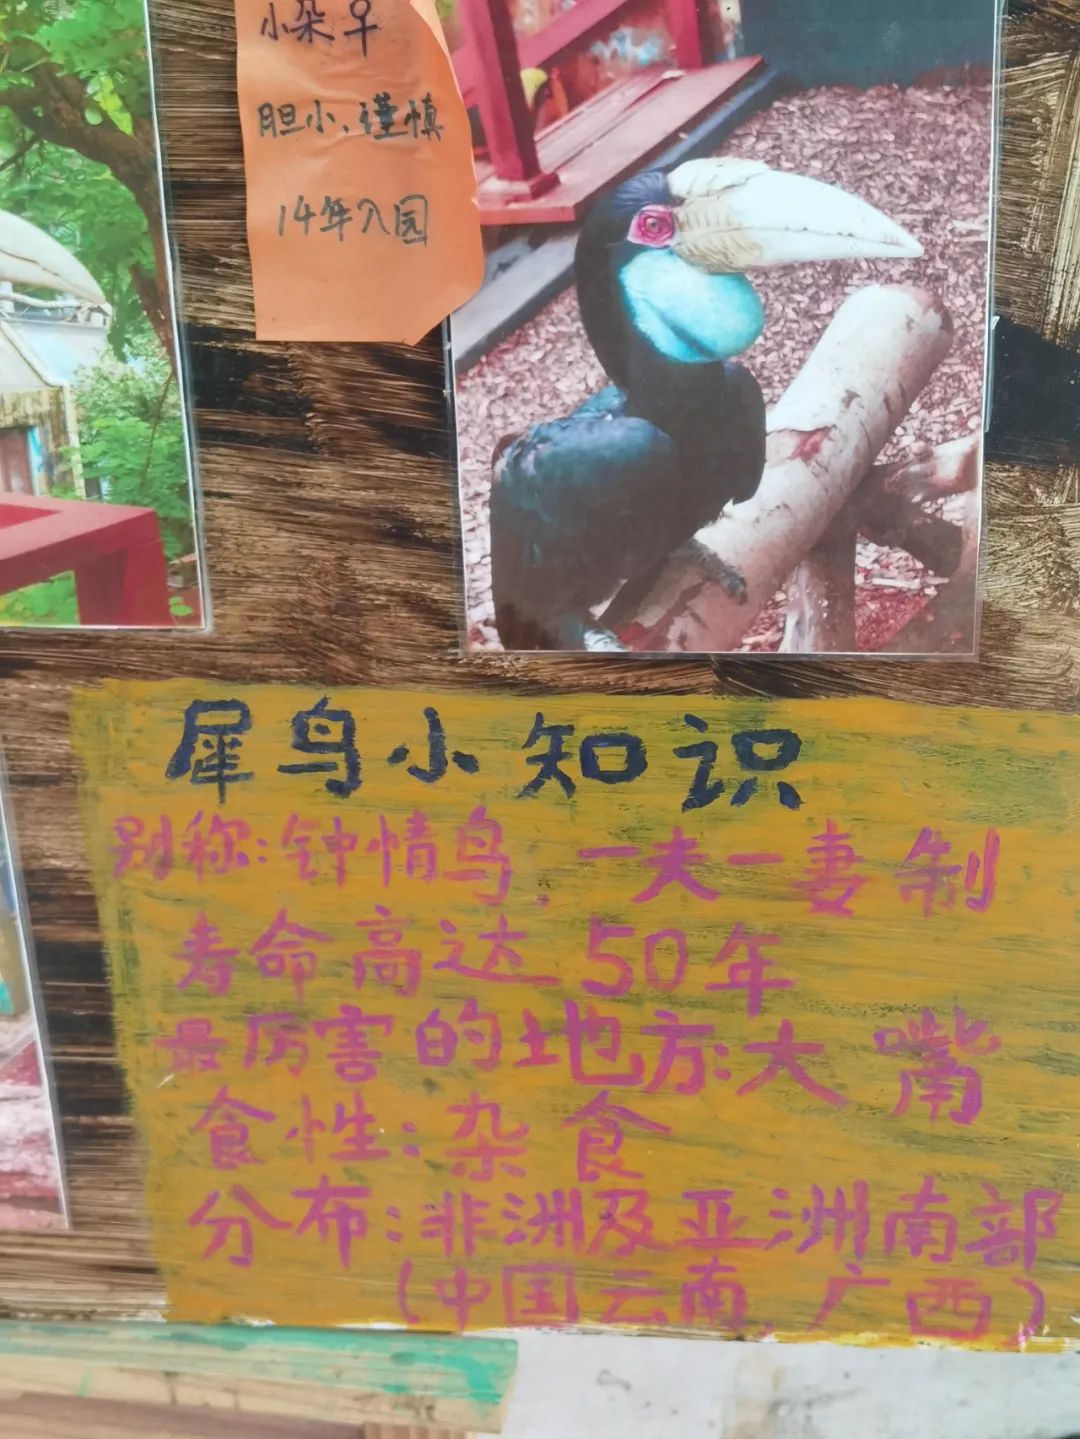 小朵♀
胆小、谨慎
14年入园
犀鸟小知识
别称:钟情鸟,一夫一妻制
寿命高达50年
最厉害的地方:大嘴
食性:杂食
分布:非洲及亚洲南部
(中国云南,广西)